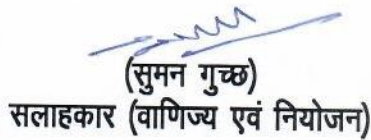 (सुमन गुच्छ)
सलाहकार (वाणिज्य एवं नियोजन)